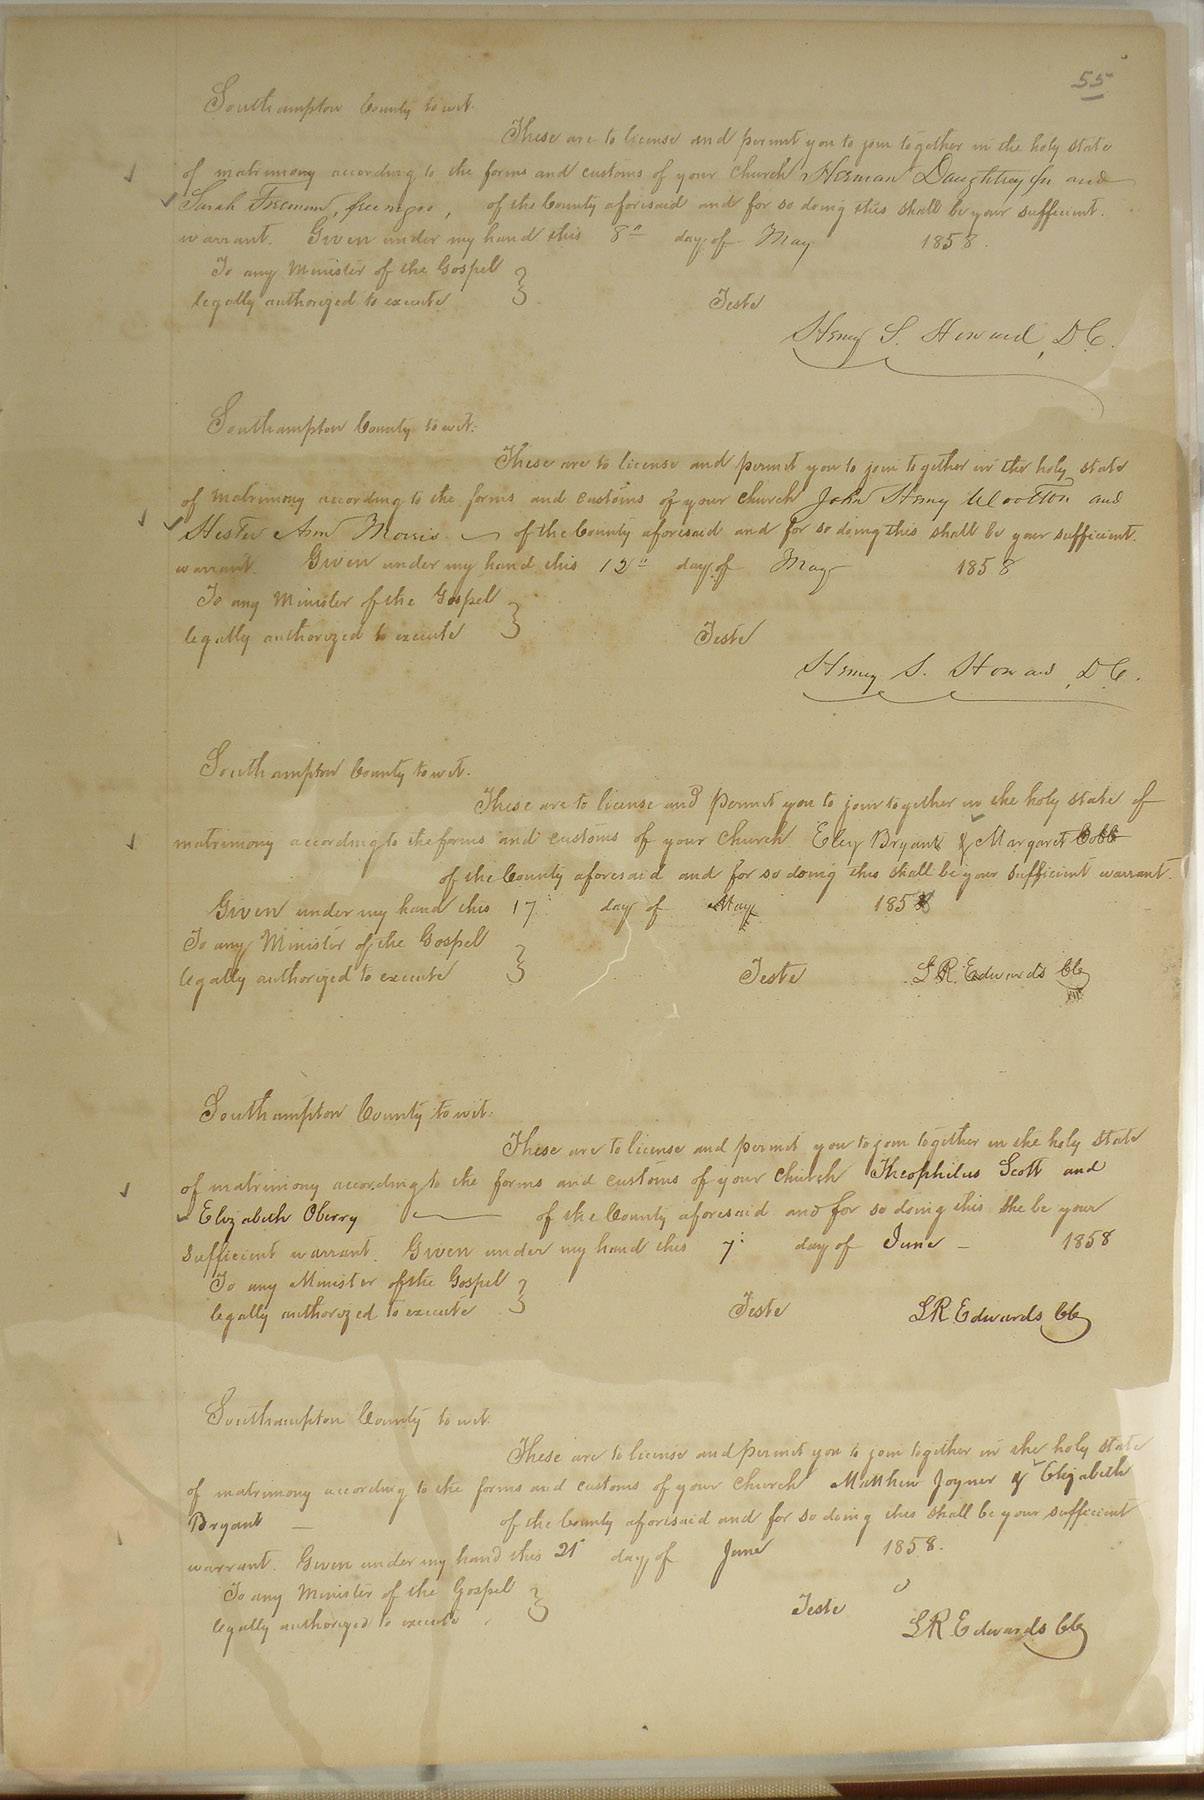 55
Southampton County to wit.
These are to license and permit you to join together in the holy state
of matrimony according to the forms and customs of your church Herman Daughtrey Jr and
Sarah Freeman, free negro, of the County aforesaid and for so doing this shall be your sufficient.
warrant. Given under my hand this 8" day of May 1858.
To any Minister of the Gospel
legally authorized to execute } Teste
Henry S. Howard, D.C.
Southampton County to wit:
These are to license and permit you to join together in the holy state
of matrimony according to the forms and customs of your church John Henry Wootton and
Hester Ann Morris of the County aforesaid and for so doing this shall be your sufficient.
warrant. Given under my hand this 12" day of May 1858
To any Minister of the Gospel
legally authorized to execute } Teste
Henry S. Howard, D.C.
Southampton County to wit.
These are to license and permit you to join together in the holy state of
matrimony according to the forms and customs of your church Eley Bryant & Margaret Cobb
of the County aforesaid and for so doing this shall be your sufficient warrant.
Given under my hand this 17 day of May 1858
To any Minister of the Gospel
legally authorized to execute } Teste L R. Edwards Clk
Southampton County to wit:
These are to license and permit you to join together in the holy state
of matrimony according to the forms and customs of your church Theophilus Scott and
Elizabeth Oberry of the County aforesaid and for so doing this she be your
sufficient warrant. Given under my hand this 7" day of June 1858
To any Minister of the Gospel
legally authorized to execute } Teste L R. Edwards Clk
Southampton County to wit.
These are to license and permit you to join together in the holy state
of matrimony according to the forms and customs of your church Matthew Joyner & Elizabeth
Bryant of the County aforesaid and for so doing this shall be your sufficient
warrant. Given under my hand this 21 day of June 1858.
To any Minister of the Gospel
legally authorized to execute } Teste
L R Edwards Clk